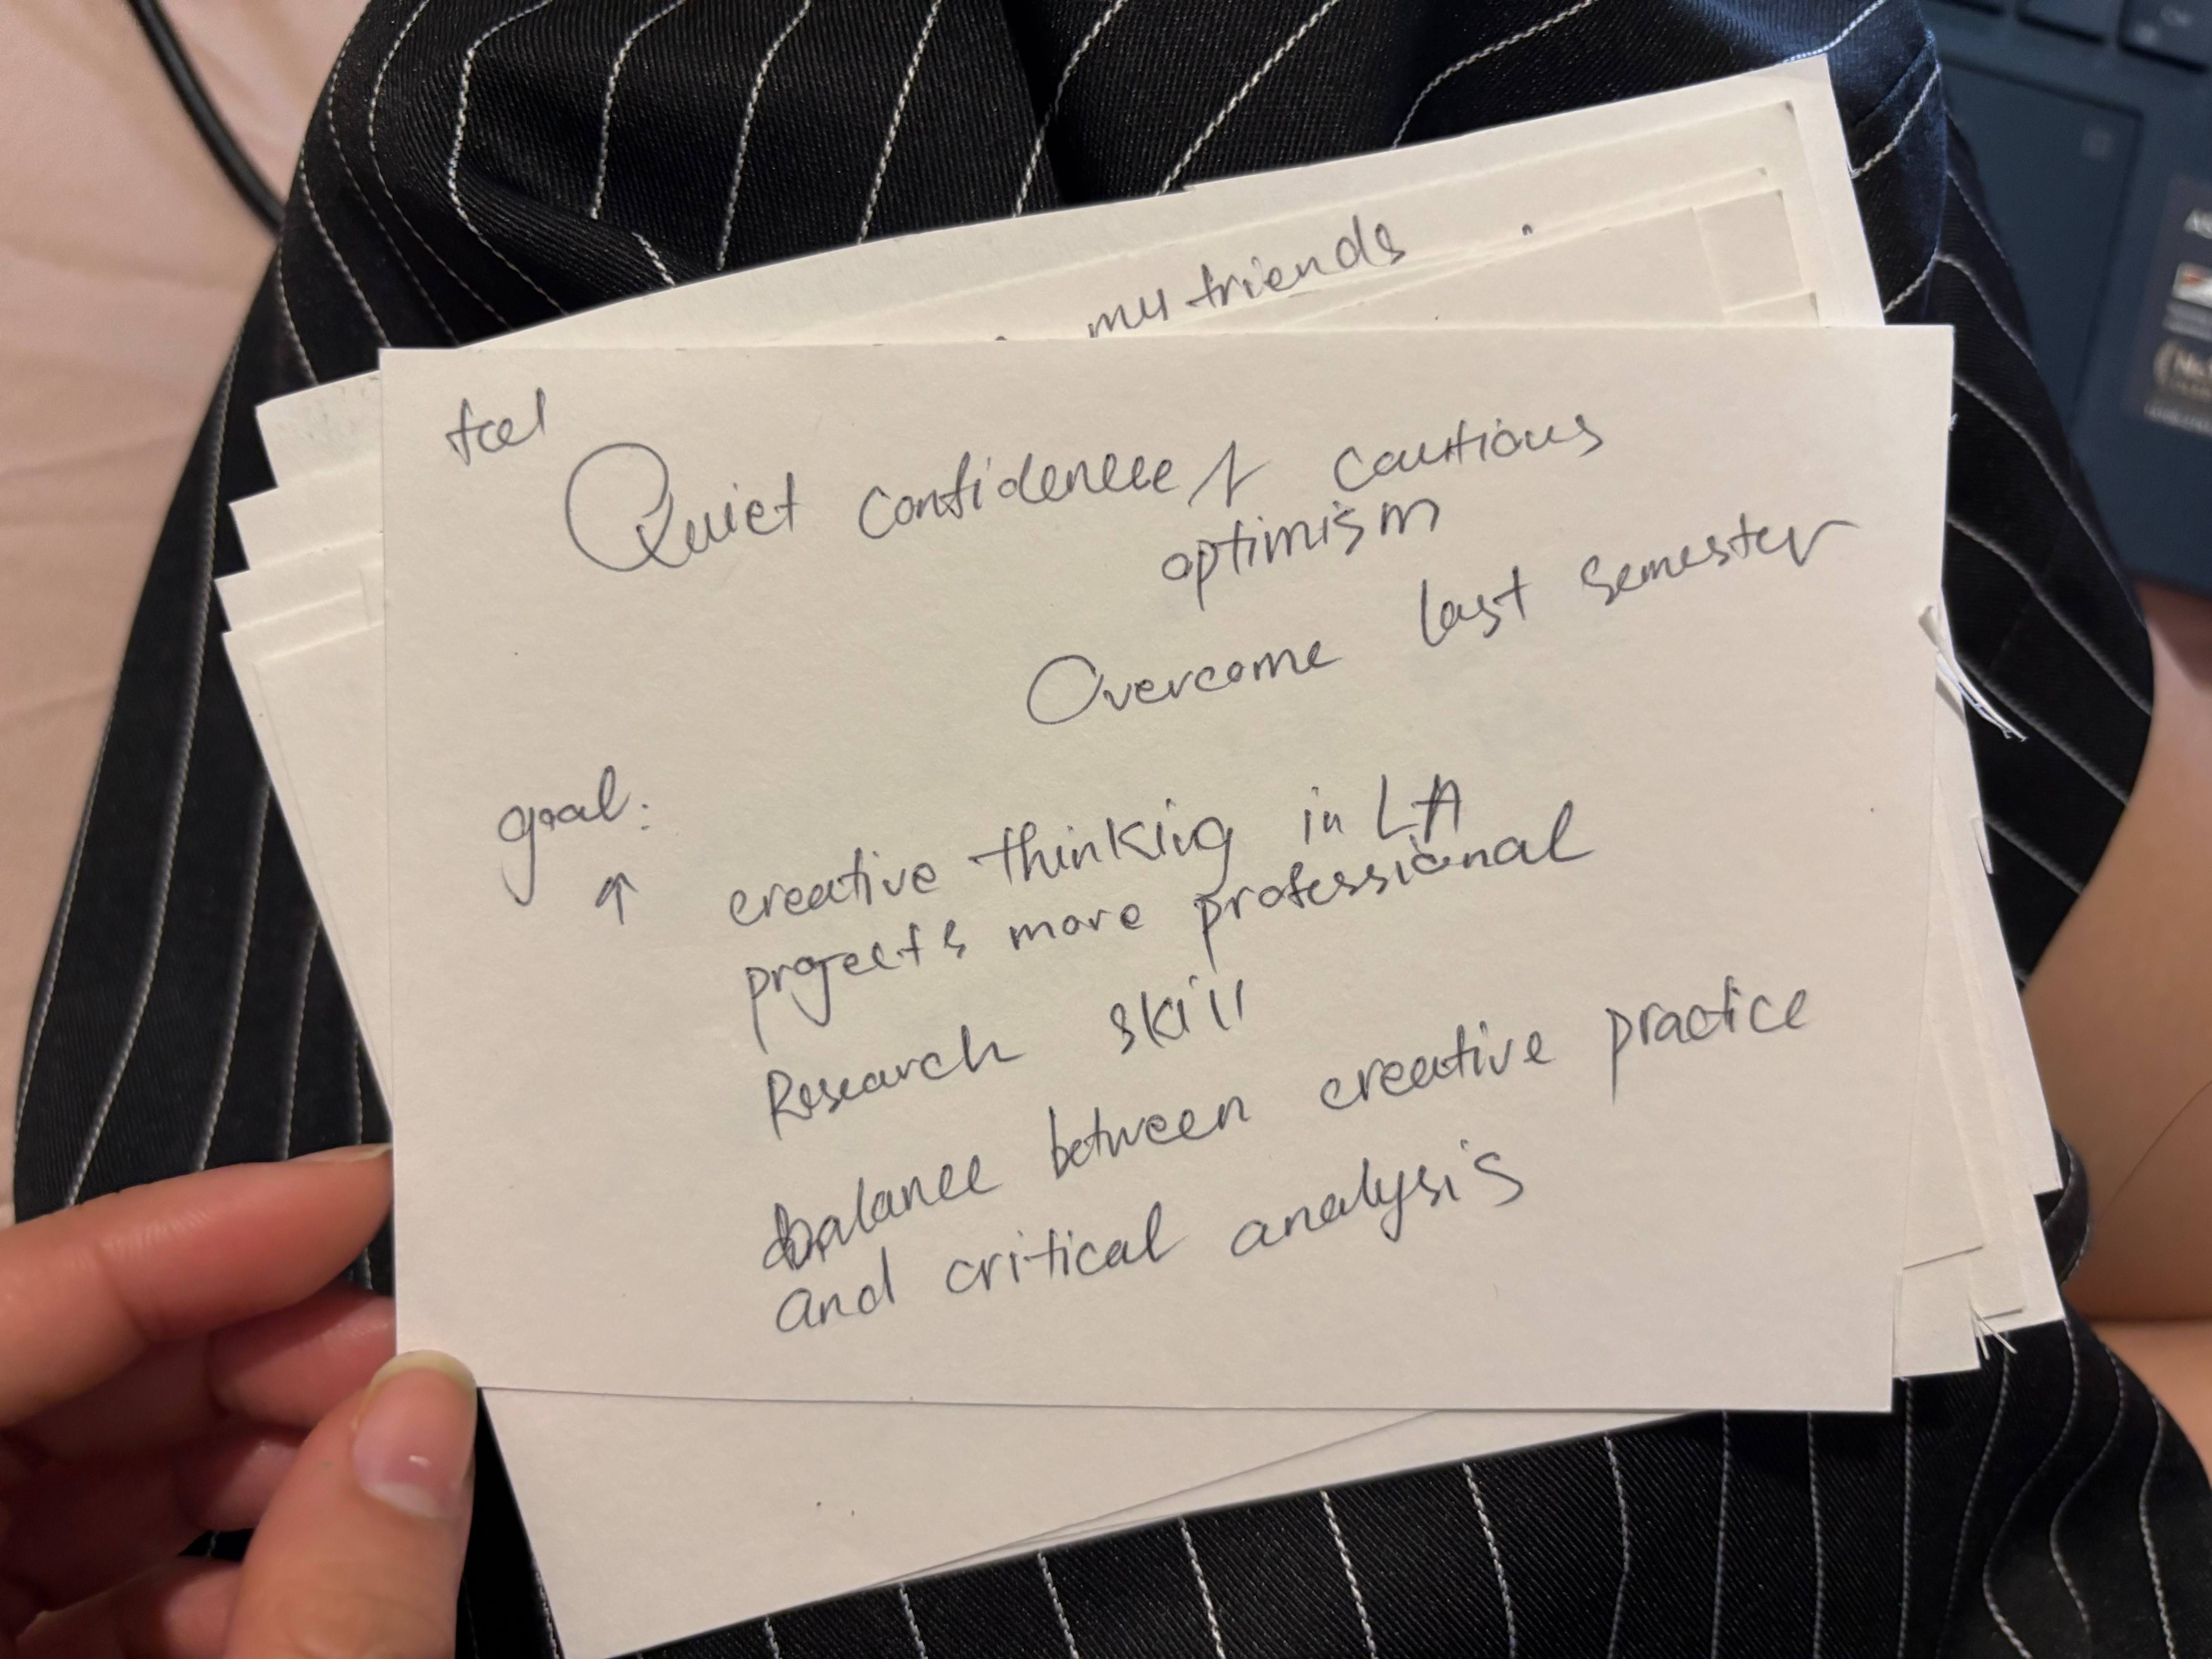 my friends
feel
Quiet confidence / cautious
optimism
Overcome last semester
goal:
↑ creative thinking in LA
projects more professional
Research skill
balance between creative practice
and critical analysis